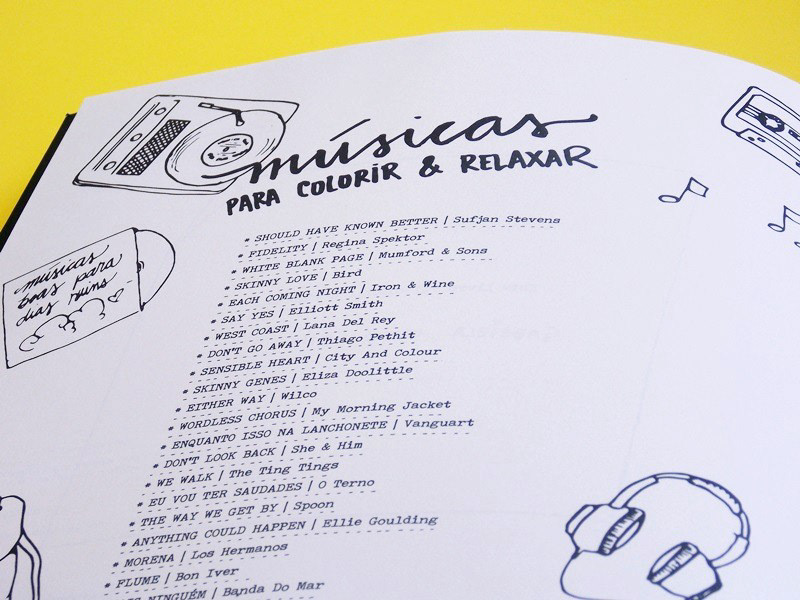 músicas
PARA COLORIR & RELAXAR
músicas
boas para
dias ruins
* SHOULD HAVE KNOWN BETTER | Sufjan Stevens
* FIDELITY | Regina Spektor
* WHITE BLANK PAGE | Mumford & Sons
* SKINNY LOVE | Bird
* EACH COMING NIGHT | Iron & Wine
* SAY YES | Elliott Smith
* WEST COAST | Lana Del Rey
* DON'T GO AWAY | Thiago Pethit
* SENSIBLE HEART | City And Colour
* SKINNY GENES | Eliza Doolittle
* EITHER WAY | Wilco
* WORDLESS CHORUS | My Morning Jacket
* ENQUANTO ISSO NA LANCHONETE | Vanguart
* DON'T LOOK BACK | She & Him
* WE WALK | The Ting Tings
* EU VOU TER SAUDADES | O Terno
* THE WAY WE GET BY | Spoon
* ANYTHING COULD HAPPEN | Ellie Goulding
* MORENA | Los Hermanos
* FLUME | Bon Iver
NINGUÉM | Banda Do Mar